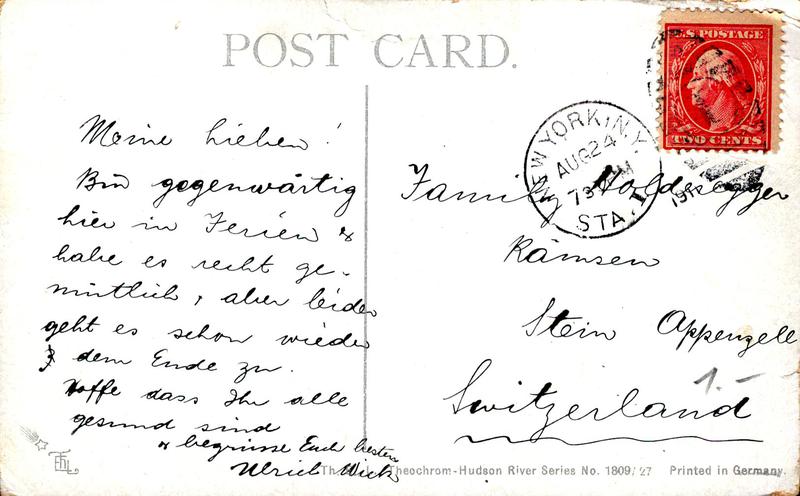 POST CARD.
U.S. POSTAGE
TWO CENTS
NEW YORK, N.Y.
AUG 24
STA.
191
Meine Lieben!
Bin gegenwärtig
hier in Ferien &
habe es recht ge-
mütlich, aber leider
geht es schon wieder
dem Ende zu.
Hoffe dass Ihr alle
gesund sind
& begrüsse Euch bestens
Ulrich Wick
Family Holderegger
Rämsen
Stein Appenzell
Switzerland
1.-
Theochrom-Hudson River Series No. 1809/27 Printed in Germany.